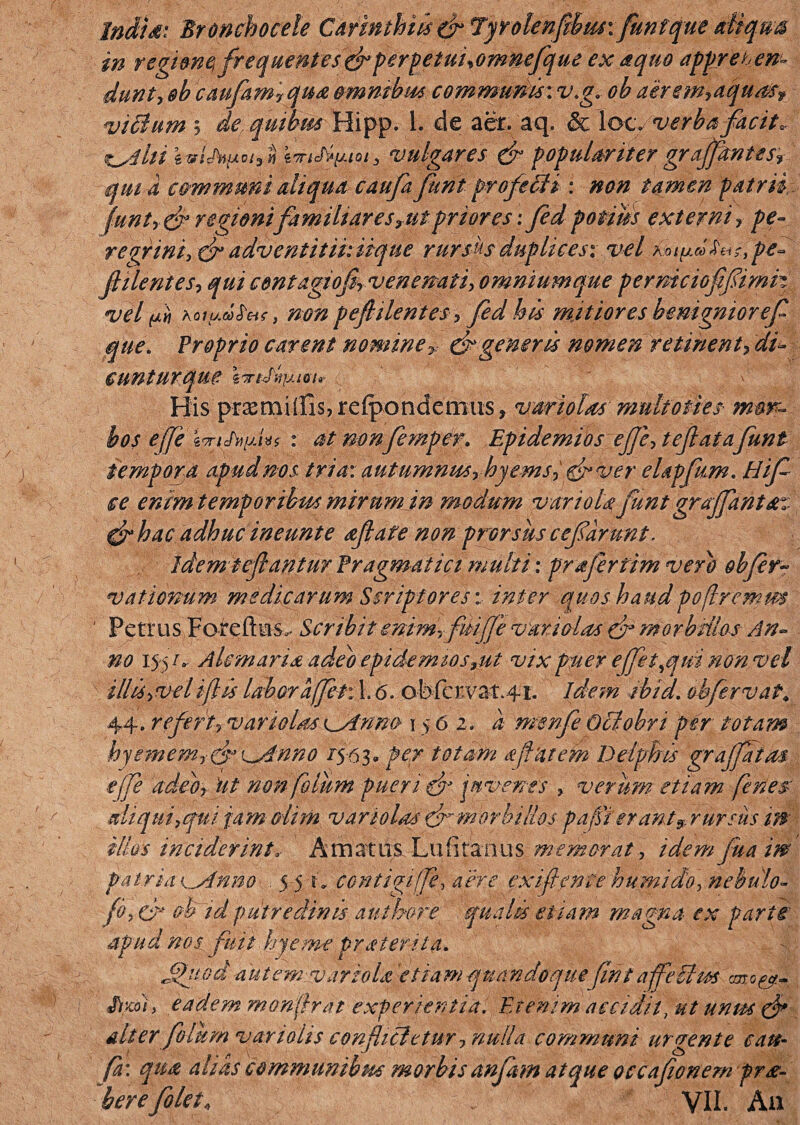 Indiæ: Bronchocele Carinthiis & Tyrolensibus: suntque aliqua
in regione frequentes & perpetui, omnesque ex æquo apprehen-
dunt, ob causam, quæ omnibus communis: v.g. ob aërem, aquas,
victum; de quibus Hipp. l. de aër. aq. & loc. verba facit.
Alii ἐπίδημοι, ἢ ἐπιδήμιοι, vulgares & populariter grassantes,
qui à communi aliqua causa sunt profecti: non tamen patrii
sunt, & regioni familiares, ut priores: sed potiùs externi, pe-
regrini, & adventitii: iique rursùs duplices: vel λοιμώδεις, pe-
stilentes, qui contagiosi, venenati, omniumque perniciosissimi:
vel μὴ λοιμώδεις, non pestilentes, sed his mitiores benigniores-
que. Proprio carent nomine, & generis nomen retinent, di-
cunturque ἐπιδήμιοι.
His præmissis, respondemus, variolas multoties mor-
bos esse ἐπιδημίας: at non semper. Epidemios esse, testata sunt
tempora apud nos tria: autumnus, hyems, & ver elapsum. His-
ce enim temporibus mirum in modum variolæ sunt grassantæ:
& hac adhuc ineunte æstate non prorsùs cessârunt.
Idem testantur Pragmatici multi: præsertim verò obser-
vationum medicarum Scriptores: inter quos haud postremus
Petrus Forestus. Scribit enim, fuisse variolas & morbillos An-
no 1551. Alcmariæ adeò epidemios, ut vix puer esset, qui non vel
illis, vel istis laborâsset: l. 6. observat. 41. Idem ibid. observat.
44. refert, variolas Anno 1562. à mense Octobri per totam
hyemem, & Anno 1563. per totam æstatem Delphis grassatas
esse adeò, ut non solùm pueri & juvenes, verùm etiam senes
aliqui, qui jam olim variolas & morbillos passi erant, rursùs in
illos inciderint. Amatus Lusitanus memorat, idem sua in
patria Anno 551. contigisse, aëre existente humido, nebulo-
so, & ob id putredinis authore qualis etiam magna ex parte
apud nos fuit hyeme præterita.
Quod autem variolæ etiam quandoque sint affectus σπορα-
δικοὶ, eadem monstrat experientia. Etenim accidit, ut unus &
alter solùm variolis conflictetur, nulla communi urgente cau-
sa: quæ aliàs communibus morbis ansam atque occasionem præ-
bere solet.
VII. An